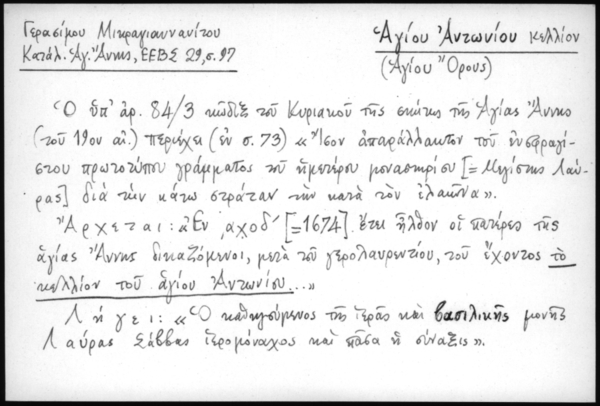 Γερασίμου Μικραγιαννανίτου
Κατάλ. Ἁγ. Ἄννης, ΕΕΒΣ 29, σ. 97
Ἁγίου Ἀντωνίου κελλίον
(Ἁγίου Ὄρους)
Ὁ ὑπ' ἀρ. 84/3 κῶδιξ τοῦ Κυριακοῦ τῆς σκήτης τῆς Ἁγίας Ἄννης
(τοῦ 19ου αἰ.) περιέχει (ἐν σ. 73) «Ἴσον ἀπαράλλακτον τοῦ ἐνσφραγί-
στου πρωτοτύπου γράμματος τοῦ ἡμετέρου μοναστηρίου [= Μεγίστης Λαύ-
ρας] διὰ τὴν κάτω στράταν τὴν κατὰ τὸν ἐλαιῶνα».
Ἄρχεται: «Ἐν ͵αχοδ´ [=1674] ἔτει ἦλθον οἱ πατέρες τῆς
ἁγίας Ἄννης δικαζόμενοι, μετὰ τοῦ γερολαυρεντίου, τοῦ ἔχοντος τὸ
κελλίον τοῦ ἁγίου Ἀντωνίου...»
Λήγει: «Ὁ καθηγούμενος τῆς ἱερᾶς καὶ βασιλικῆς μονῆς
Λαύρας Σάββας ἱερομόναχος καὶ πᾶσα ἡ σύναξις».